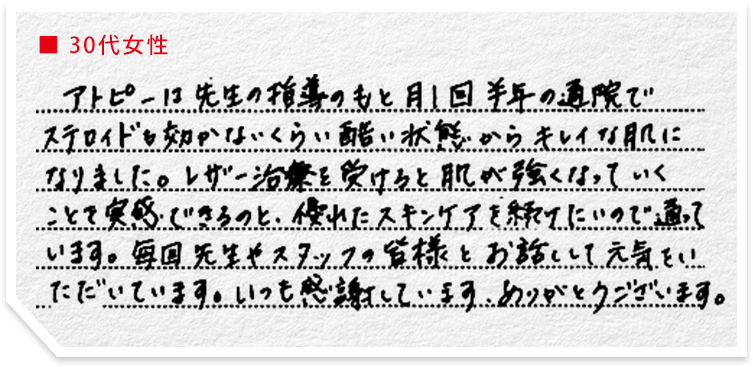 ■ 30代女性
アトピーは先生の指導のもと月1回半年の通院で
ステロイドも効かないくらい酷い状態からキレイな肌に
なりました。レザー治療を受けると肌が強くなっていく
ことを実感できるのと、優れたスキンケアを続けたいので通って
います。毎回先生やスタッフの皆様とお話しして元気をい
ただいています。いつも感謝しています、ありがとうございます。